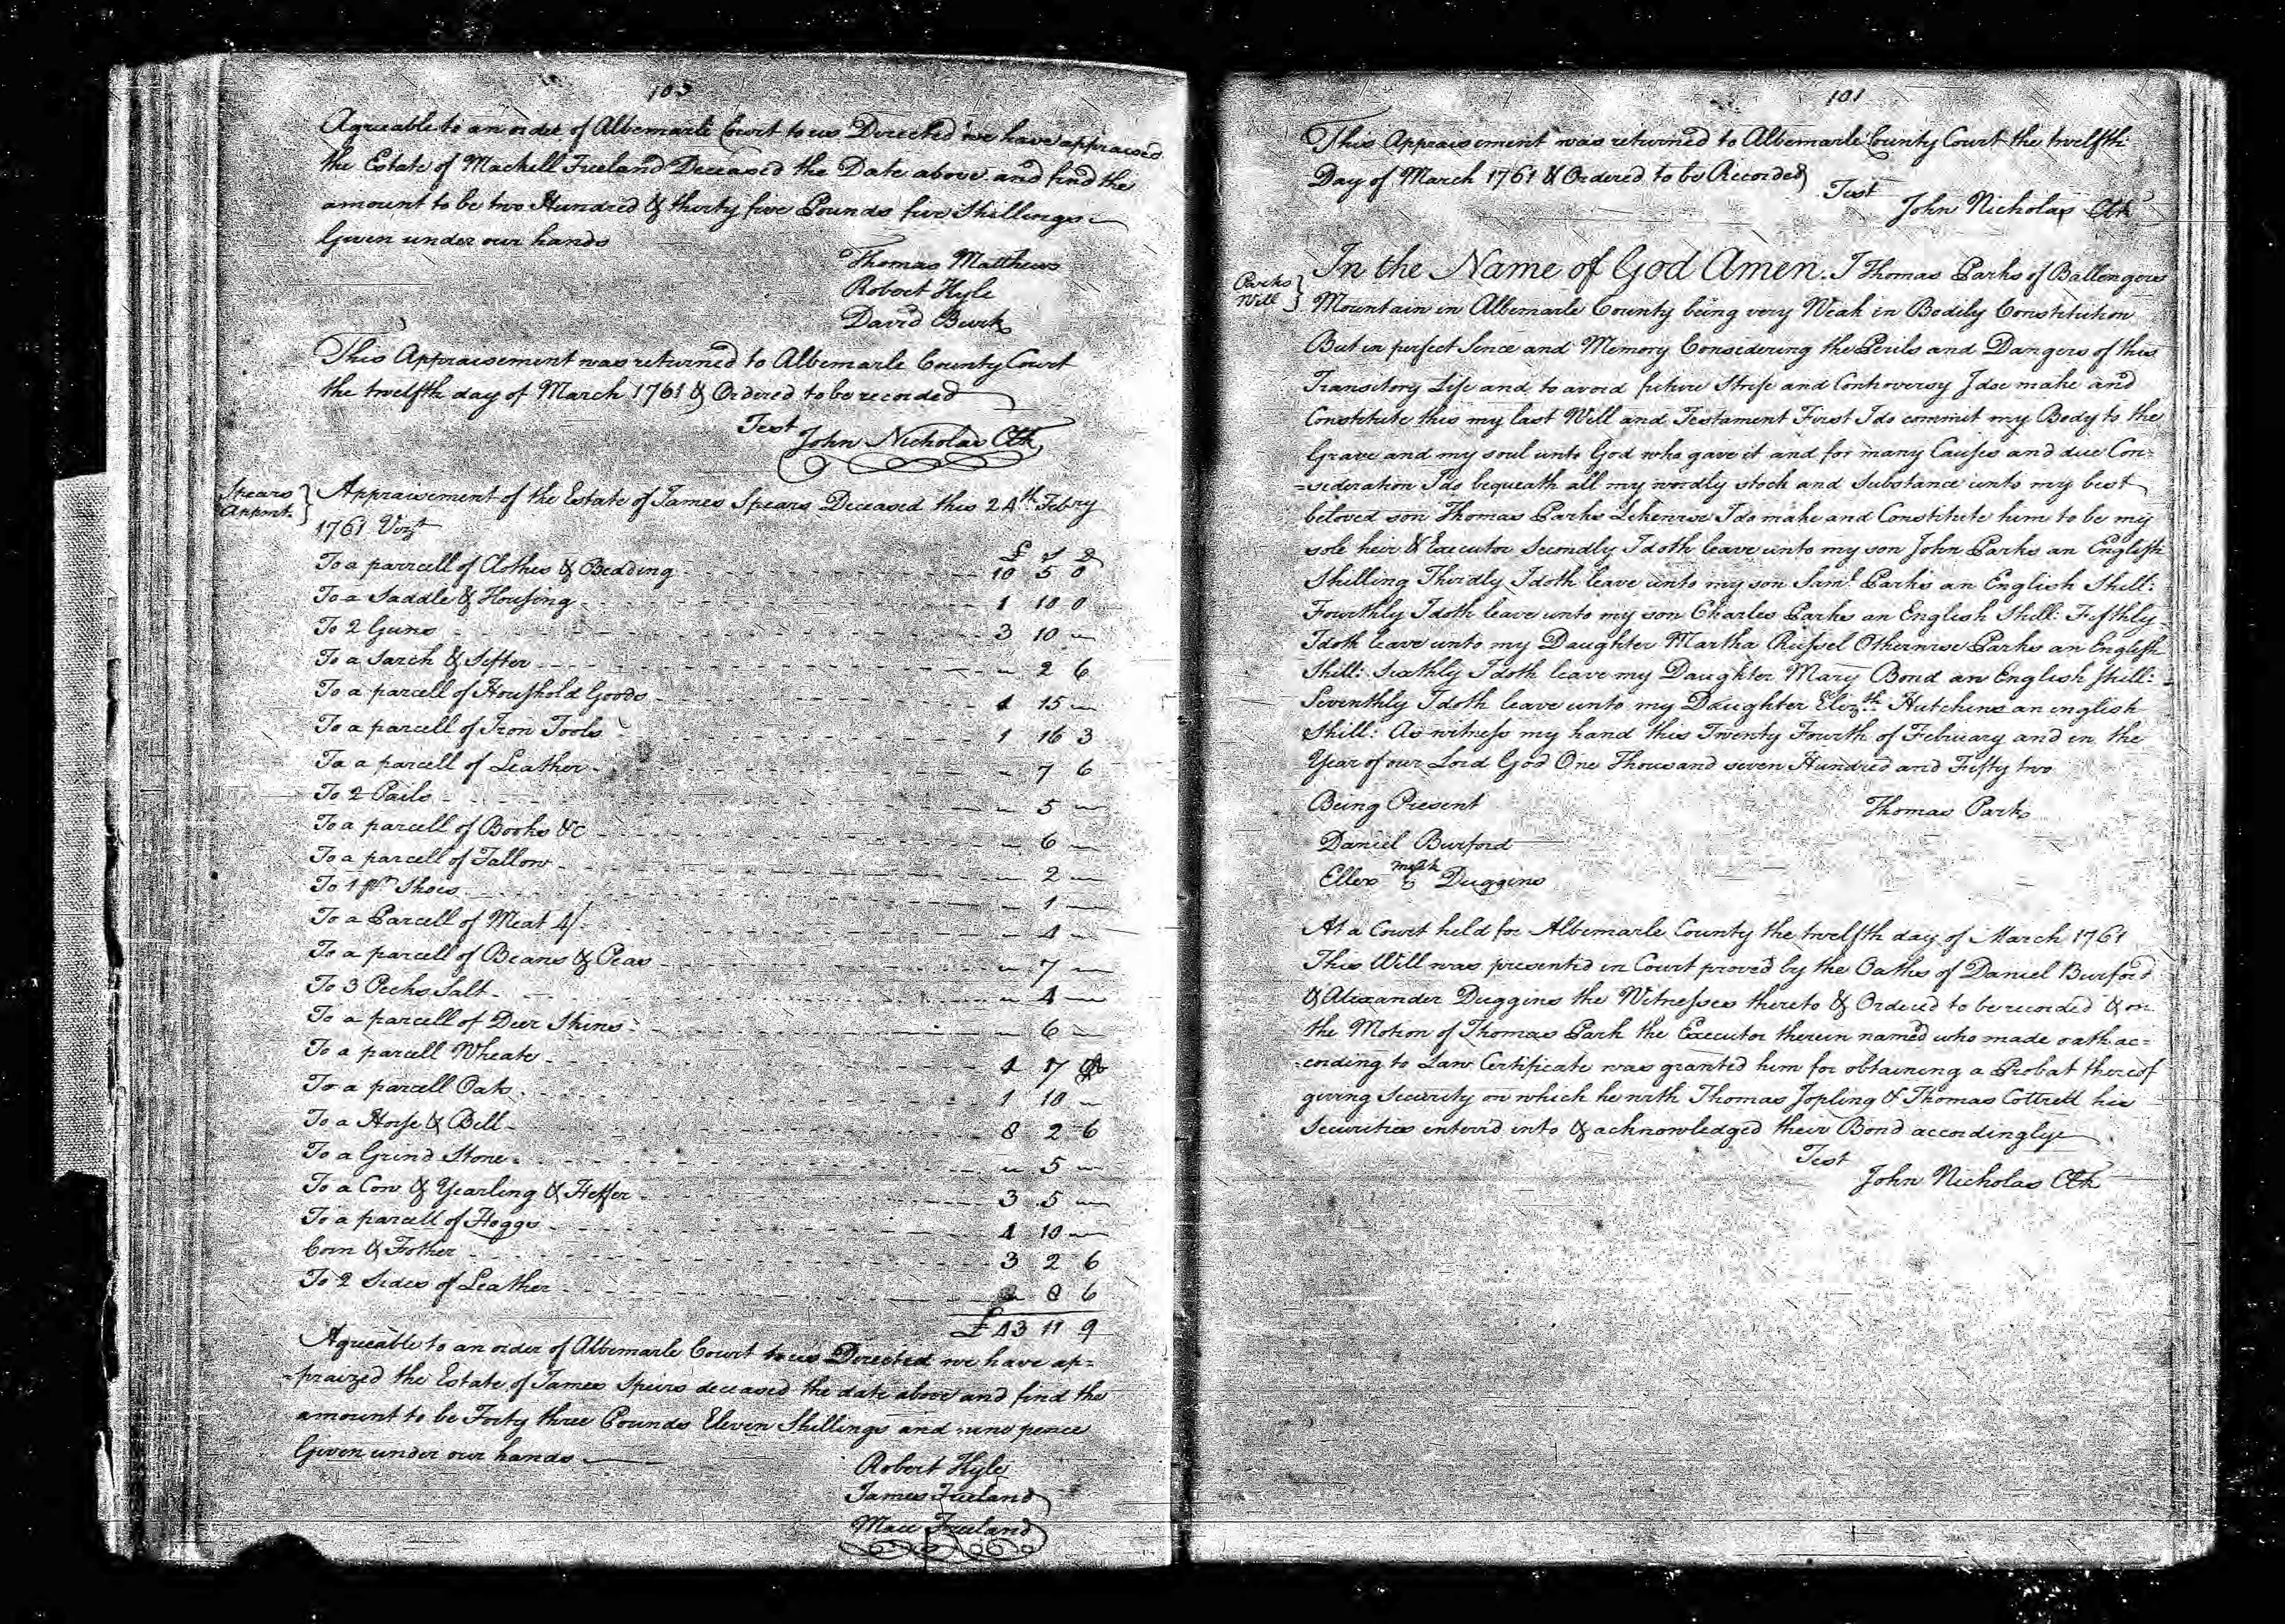 103
Agreable to an order of Albemarle Court to us Directed we have appraised
the Estate of Mackell Freeland Deceased the Date above and find the
amount to be two Hundred & thirty five Pounds five Shillings
Given under our hands
Thomas Matthews
Robert Hyle
David Burk
This Appraisement was returned to Albemarle County Court
the twelfth day of March 1761 & Ordered to be recorded
Test
John Nicholas Clk
Spears
Appmt.
Appraisement of the Estate of James Spears Deceased this 24th Febry
1761 Vizt
£ s d
To a parcell of Clothes & Bedding 10 5 0
To a Saddle & Housing 1 10 0
To 2 Guns 3 10 —
To a Sarch & Sifter — 2 6
To a parcell of Houshold Goods 4 15 —
To a parcell of Iron Tools 1 16 3
To a parcell of Leather — 7 6
To 2 Pails — 5 —
To a parcell of Books &c — 6 —
To a parcell of Tallow — 2 —
To 1 pr Shoes — 1 —
To a Parcell of Meat 4/ — 4 —
To a parcell of Beans & Peas — 7 —
To 3 Pecks Salt — 4 —
To a parcell of Deer Skins — 6 —
To a parcell Wheate 4 17
To a parcell Oats 1 10 —
To a Horse & Bell 8 2 6
To a Grind Stone — 5 —
To a Cow & Yearling & Heffer 3 5 —
To a parcell of Hoggs 4 10 —
Corn & Fother 3 2 6
To 2 Sides of Leather 8 6
£ 43 11 9
Agreable to an order of Albemarle Court to us Directed we have ap=
=praized the Estate of James Speirs deceased the date above and find the
amount to be Forty three Pounds Eleven Shillings and nine pence
Given under our hands
Robert Hyle
James Freeland
Mace Freeland
101
This Appraisement was returned to Albemarle County Court the twelfth
Day of March 1761 & Ordered to be Recorded
Test
John Nicholas Clk
Parks
Will
In the Name of God Amen. I Thomas Parks of Ballengers
Mountain in Albemarle County being very Weak in Bodily Constitution
But in perfect Sence and Memory Considering the Perils and Dangers of this
Transitory Life and to avoid future Strife and Controversy I doe make and
Constitute this my last Will and Testament First I do commit my Body to the
Grave and my soul unto God who gave it and for many Causes and due Con=
=sideration I do bequeath all my wordly stock and Substance unto my best
beloved son Thomas Parks Likewise I do make and Constitute him to be my
sole heir & Executor Secondly I doth leave unto my son John Parks an English
Shilling Thirdly I doth leave unto my son Saml. Parks an English Shill:
Fourthly I doth leave unto my son Charles Parks an English Shill: Fifthly
I doth leave unto my Daughter Martha Russel Otherwise Parks an English
Shill: Sixthly I doth leave my Daughter Mary Bond an English Shill:
Seventhly I doth leave unto my Daughter Elizth. Hutchins an english
Shill: As witness my hand this Twenty Fourth of February and in the
Year of our Lord God One Thousand seven Hundred and Fifty two
Being Present
Thomas Parks
Daniel Burford
Ellex mark Duggins
At a Court held for Albemarle County the twelfth day of March 1761
This Will was presented in Court proved by the Oaths of Daniel Burford
& Alexander Duggins the Witnesses thereto & Ordered to be recorded & on
the Motion of Thomas Park the Executor therein named who made oath ac=
=cording to Law Certificate was granted him for obtaining a Probat thereof
giving Security on which he with Thomas Jopling & Thomas Cottrell his
Securities enterd into & acknowledged their Bond accordingly
Test
John Nicholas Clk